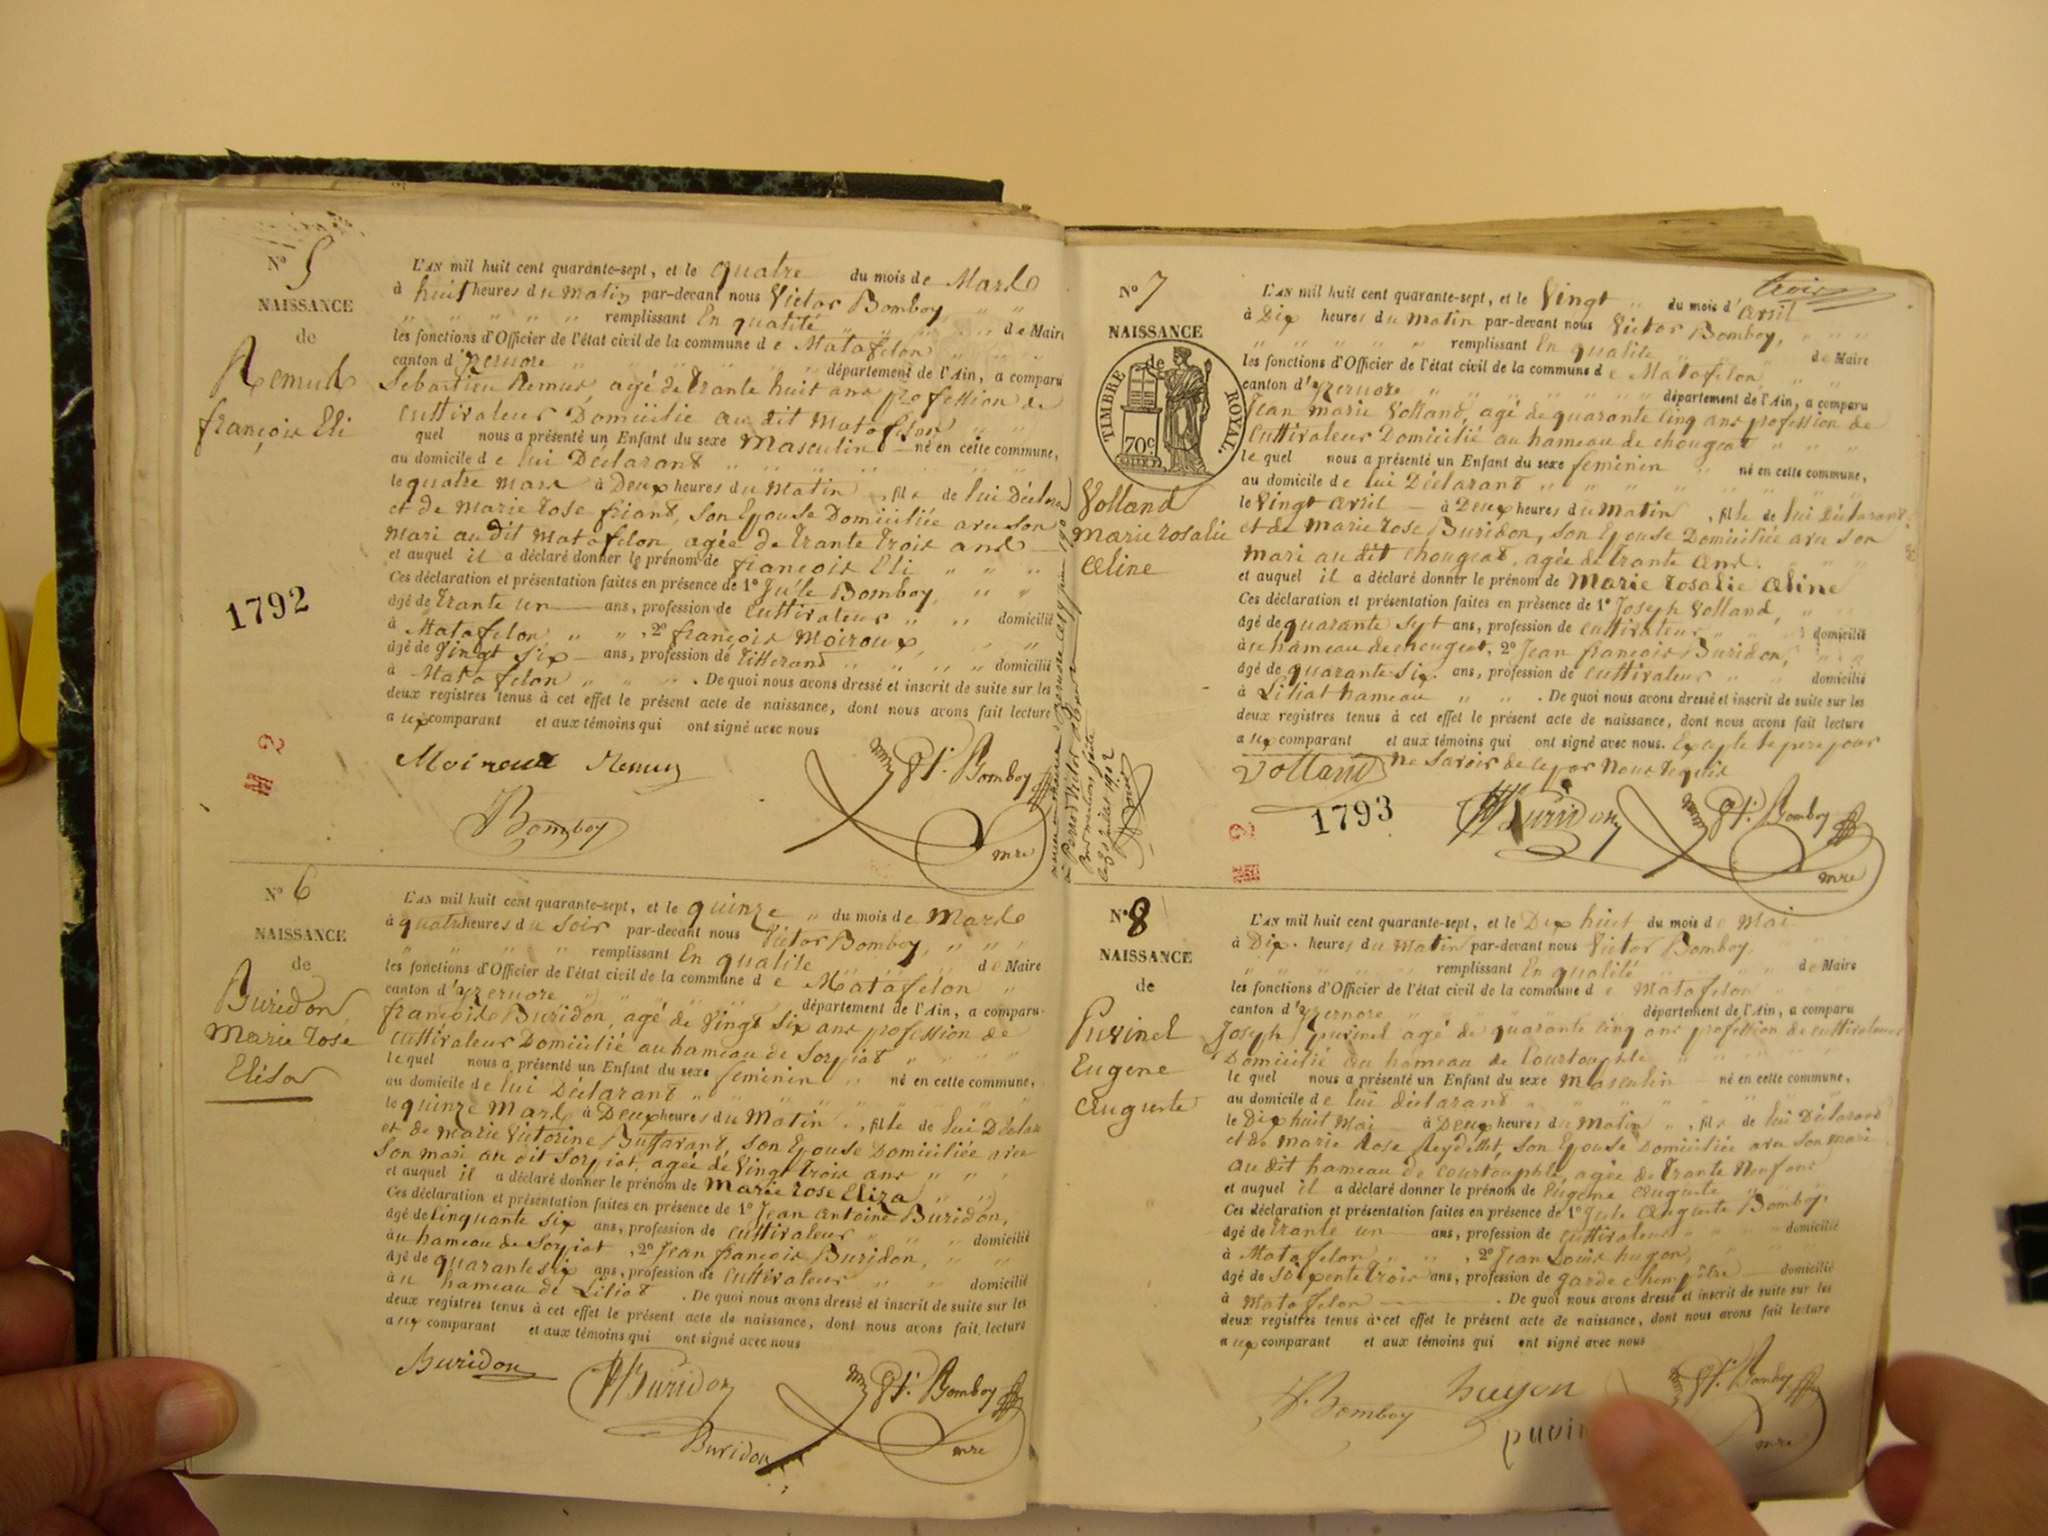 N° 5
NAISSANCE
de
Remud
françois Eli
1792
L'AN mil huit cent quarante-sept, et le quatre du mois de Mars
à huit heures du matin par-devant nous Victor Bomboy
remplissant En qualité de Maire
les fonctions d'Officier de l'état civil de la commune de Matafelon
canton d'yzernore département de l'Ain, a comparu
Sebastien Remus, agé de trante huit ans profession de
cultivateur Domicilié au dit Matafelon
quel nous a présenté un Enfant du sexe Masculin né en cette commune,
au domicile de lui Déclarant
le quatre mars à Deux heures du Matin, fils de lui Déclara
et de Marie Rose friand, Son Epouse Domiciliée avec son
Mari au dit Matafelon, agée de trante trois ans
et auquel il a déclaré donner le prénom de françois Eli
Ces déclaration et présentation faites en présence de 1° Jule Bomboy,
âgé de trante un ans, profession de cultivateur domicilié
à Matafelon, 2° françois Moiroux,
âgé de Vingt Six ans, profession de Titterand domicilié
à Matafelon. De quoi nous avons dressé et inscrit de suite sur les
deux registres tenus à cet effet le présent acte de naissance, dont nous avons fait lecture
aux comparant et aux témoins qui ont signé avec nous
Moiroux Remus Vt. Bomboy
Bomboy mre
N° 6
NAISSANCE
de
Buridon
Marie rose
Elisa
L'AN mil huit cent quarante-sept, et le quinze du mois de Mars
à quatre heures du soir par-devant nous Victor Bomboy,
remplissant En qualité de Maire
les fonctions d'Officier de l'état civil de la commune de Matafelon
canton d'yzernore département de l'Ain, a comparu
françois Buridon, agé de Vingt Six ans profession de
cultivateur Domicilié au hameau de Sorpiat
le quel nous a présenté un Enfant du sexe feminin né en cette commune,
au domicile de lui Déclarant
le quinze Mars à Deux heures du Matin, fille de lui Déclar
et de Marie Victorine Buffavand, son Epouse Domiciliée avec
son mari au dit Sorpiat, agée de Vingt trois ans
et auquel il a déclaré donner le prénom de Marie rose Eliza
Ces déclaration et présentation faites en présence de 1° Jean Antoine Buridon,
âgé de cinquante six ans, profession de cultivateur
au hameau de Sorpiat, 2° Jean françois Buridon, domicilié
âgé de quarante six ans, profession de cultivateur
à u hameau de Siliat domicilié. De quoi nous avons dressé et inscrit de suite sur les
deux registres tenus à cet effet le présent acte de naissance, dont nous avons fait lecture
aux comparant et aux témoins qui ont signé avec nous
Buridon Buridon Vt. Bomboy
Buridon mre
trois
N° 7
NAISSANCE
de
TIMBRE ROYAL.
70c.
Volland
Marie rosalie
Celine
1793
L'AN mil huit cent quarante-sept, et le Vingt du mois d'avril
à Dix heures du Matin par-devant nous Victor Bomboy,
remplissant En qualité de Maire
les fonctions d'Officier de l'état civil de la commune de Matafelon
canton d'yzernore département de l'Ain, a comparu
Jean marie Volland, agé de quarante cinq ans profession de
cultivateur Domicilié au hameau de chougeat
le quel nous a présenté un Enfant du sexe feminin né en cette commune,
au domicile de lui Déclarant
le Vingt avril à Deux heures du Matin, fille de lui Déclarant
et de Marie rose Buridon, son Epouse Domiciliée avec Son
Mari au dit chougeat, agée de trante ans.
et auquel il a déclaré donner le prénom de Marie rosalie Celine
Ces déclaration et présentation faites en présence de 1° Joseph Volland,
âgé de quarante sept ans, profession de cultivateur domicilié
au hameau de chougeat, 2° Jean françois Buridon,
âgé de quarante six ans, profession de cultivateur domicilié
à Siliat hameau. De quoi nous avons dressé et inscrit de suite sur les
deux registres tenus à cet effet le présent acte de naissance, dont nous avons fait lecture
aux comparant et aux témoins qui ont signé avec nous. Excepté le pere pour
ne Savoir de ce par Nous requis
Volland Buridon Vt. Bomboy
mre
N° 8
NAISSANCE
de
Puvinel
Eugene
Auguste
L'AN mil huit cent quarante-sept, et le Dix huit du mois de Mai
à Dix heures du Matin par-devant nous Victor Bomboy,
remplissant En qualité de Maire
les fonctions d'Officier de l'état civil de la commune de Matafelon
canton d'yzernore département de l'Ain, a comparu
Joseph puvinel agé de quarante cinq ans profession de cultivateur
Domicilié au hameau de Courtouphle
le quel nous a présenté un Enfant du sexe Masculin né en cette commune,
au domicile de lui déclarant
le Dix huit Mai à Deux heures du Matin, fils de lui Déclarant
et de Marie Rose Reydellet, son Epouse Domiciliée avec Son mari
au dit hameau de courtouphle, agée de trante Neuf ans
et auquel il a déclaré donner le prénom de Eugene Auguste
Ces déclaration et présentation faites en présence de 1° Jule Auguste Bomboy,
âgé de trante un ans, profession de cultivateur domicilié
à Matafelon, 2° Jean Louis hugon,
âgé de soixente trois ans, profession de garde champêtre domicilié
à Matafelon. De quoi nous avons dressé et inscrit de suite sur les
deux registres tenus à cet effet le présent acte de naissance, dont nous avons fait lecture
aux comparant et aux témoins qui ont signé avec nous
Bomboy hugon Vt. Bomboy
mre